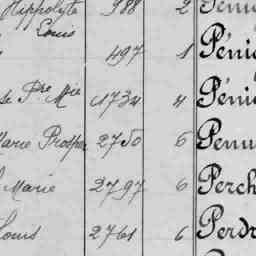 Hippolyte 988 2 Péni
Louis
497 1 Péni
se Pre Mie 1734 4 Péni
Marie Prosper 2750 5 Penu
Marie 2797 6 Perch
Louis 2761 6 Perdr